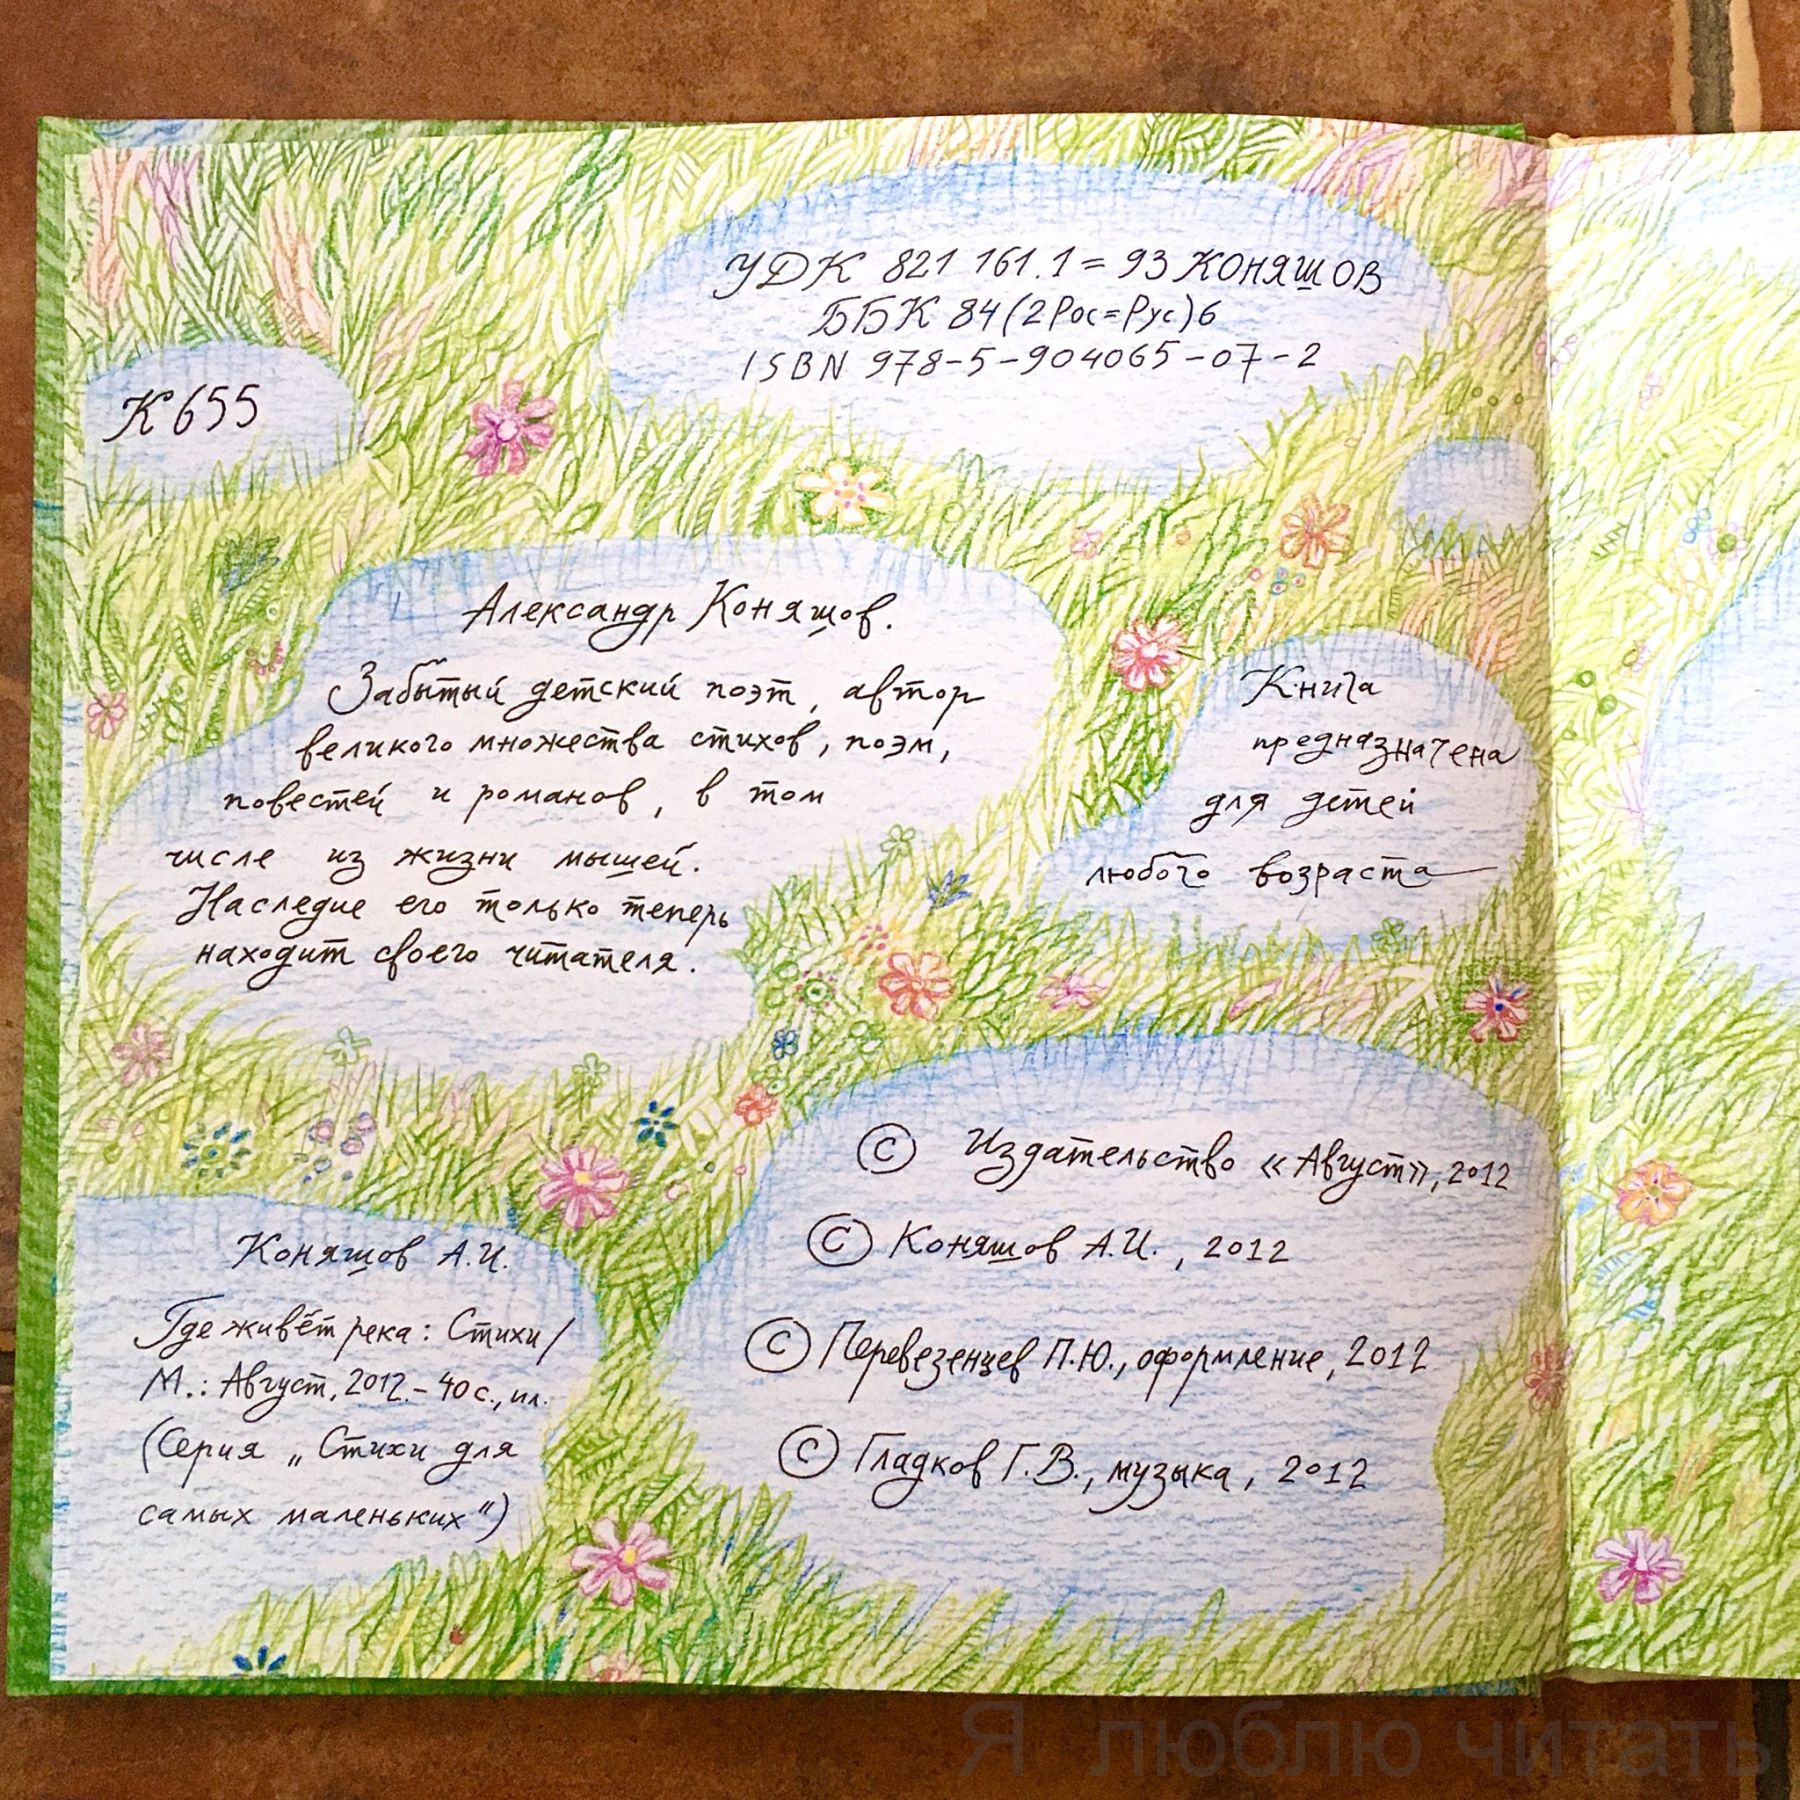 УДК 821 161.1 = 93 КОНЯШОВ
ББК 84 (2Рос=Рус) 6
ISBN 978-5-904065-07-2
К 655
Александр Коняшов.
Забытый детский поэт, автор
великого множества стихов, поэм,
повестей и романов, в том
числе из жизни мышей.
Наследие его только теперь
находит своего читателя.
Книга
предназначена
для детей
любого возраста
© Издательство «Август», 2012
© Коняшов А.И., 2012
© Перевезенцев П.Ю., оформление, 2012
© Гладков Г.В., музыка, 2012
Коняшов А.И.
Где живёт река: Стихи/
М.: Август, 2012.- 40 с., ил.
(Серия „Стихи для
самых маленьких")
Я люблю читать